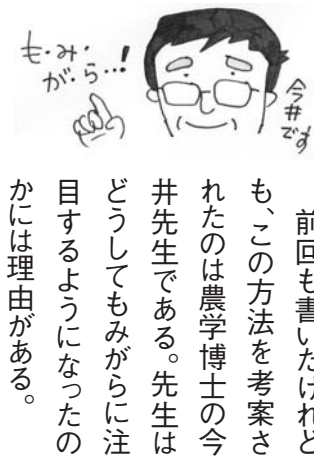 も・み・
が・ら・・・!
今井
です
前回も書いたけれど
も、この方法を考案さ
れたのは農学博士の今
井先生である。先生は
どうしてもみがらに注
目するようになったの
かには理由がある。